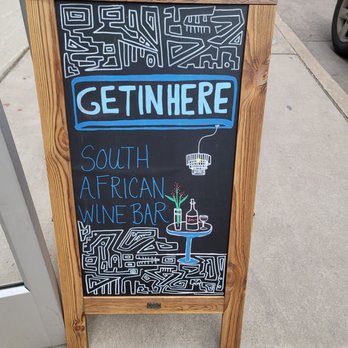 GET IN HERE
SOUTH
AFRICAN
WINE BAR